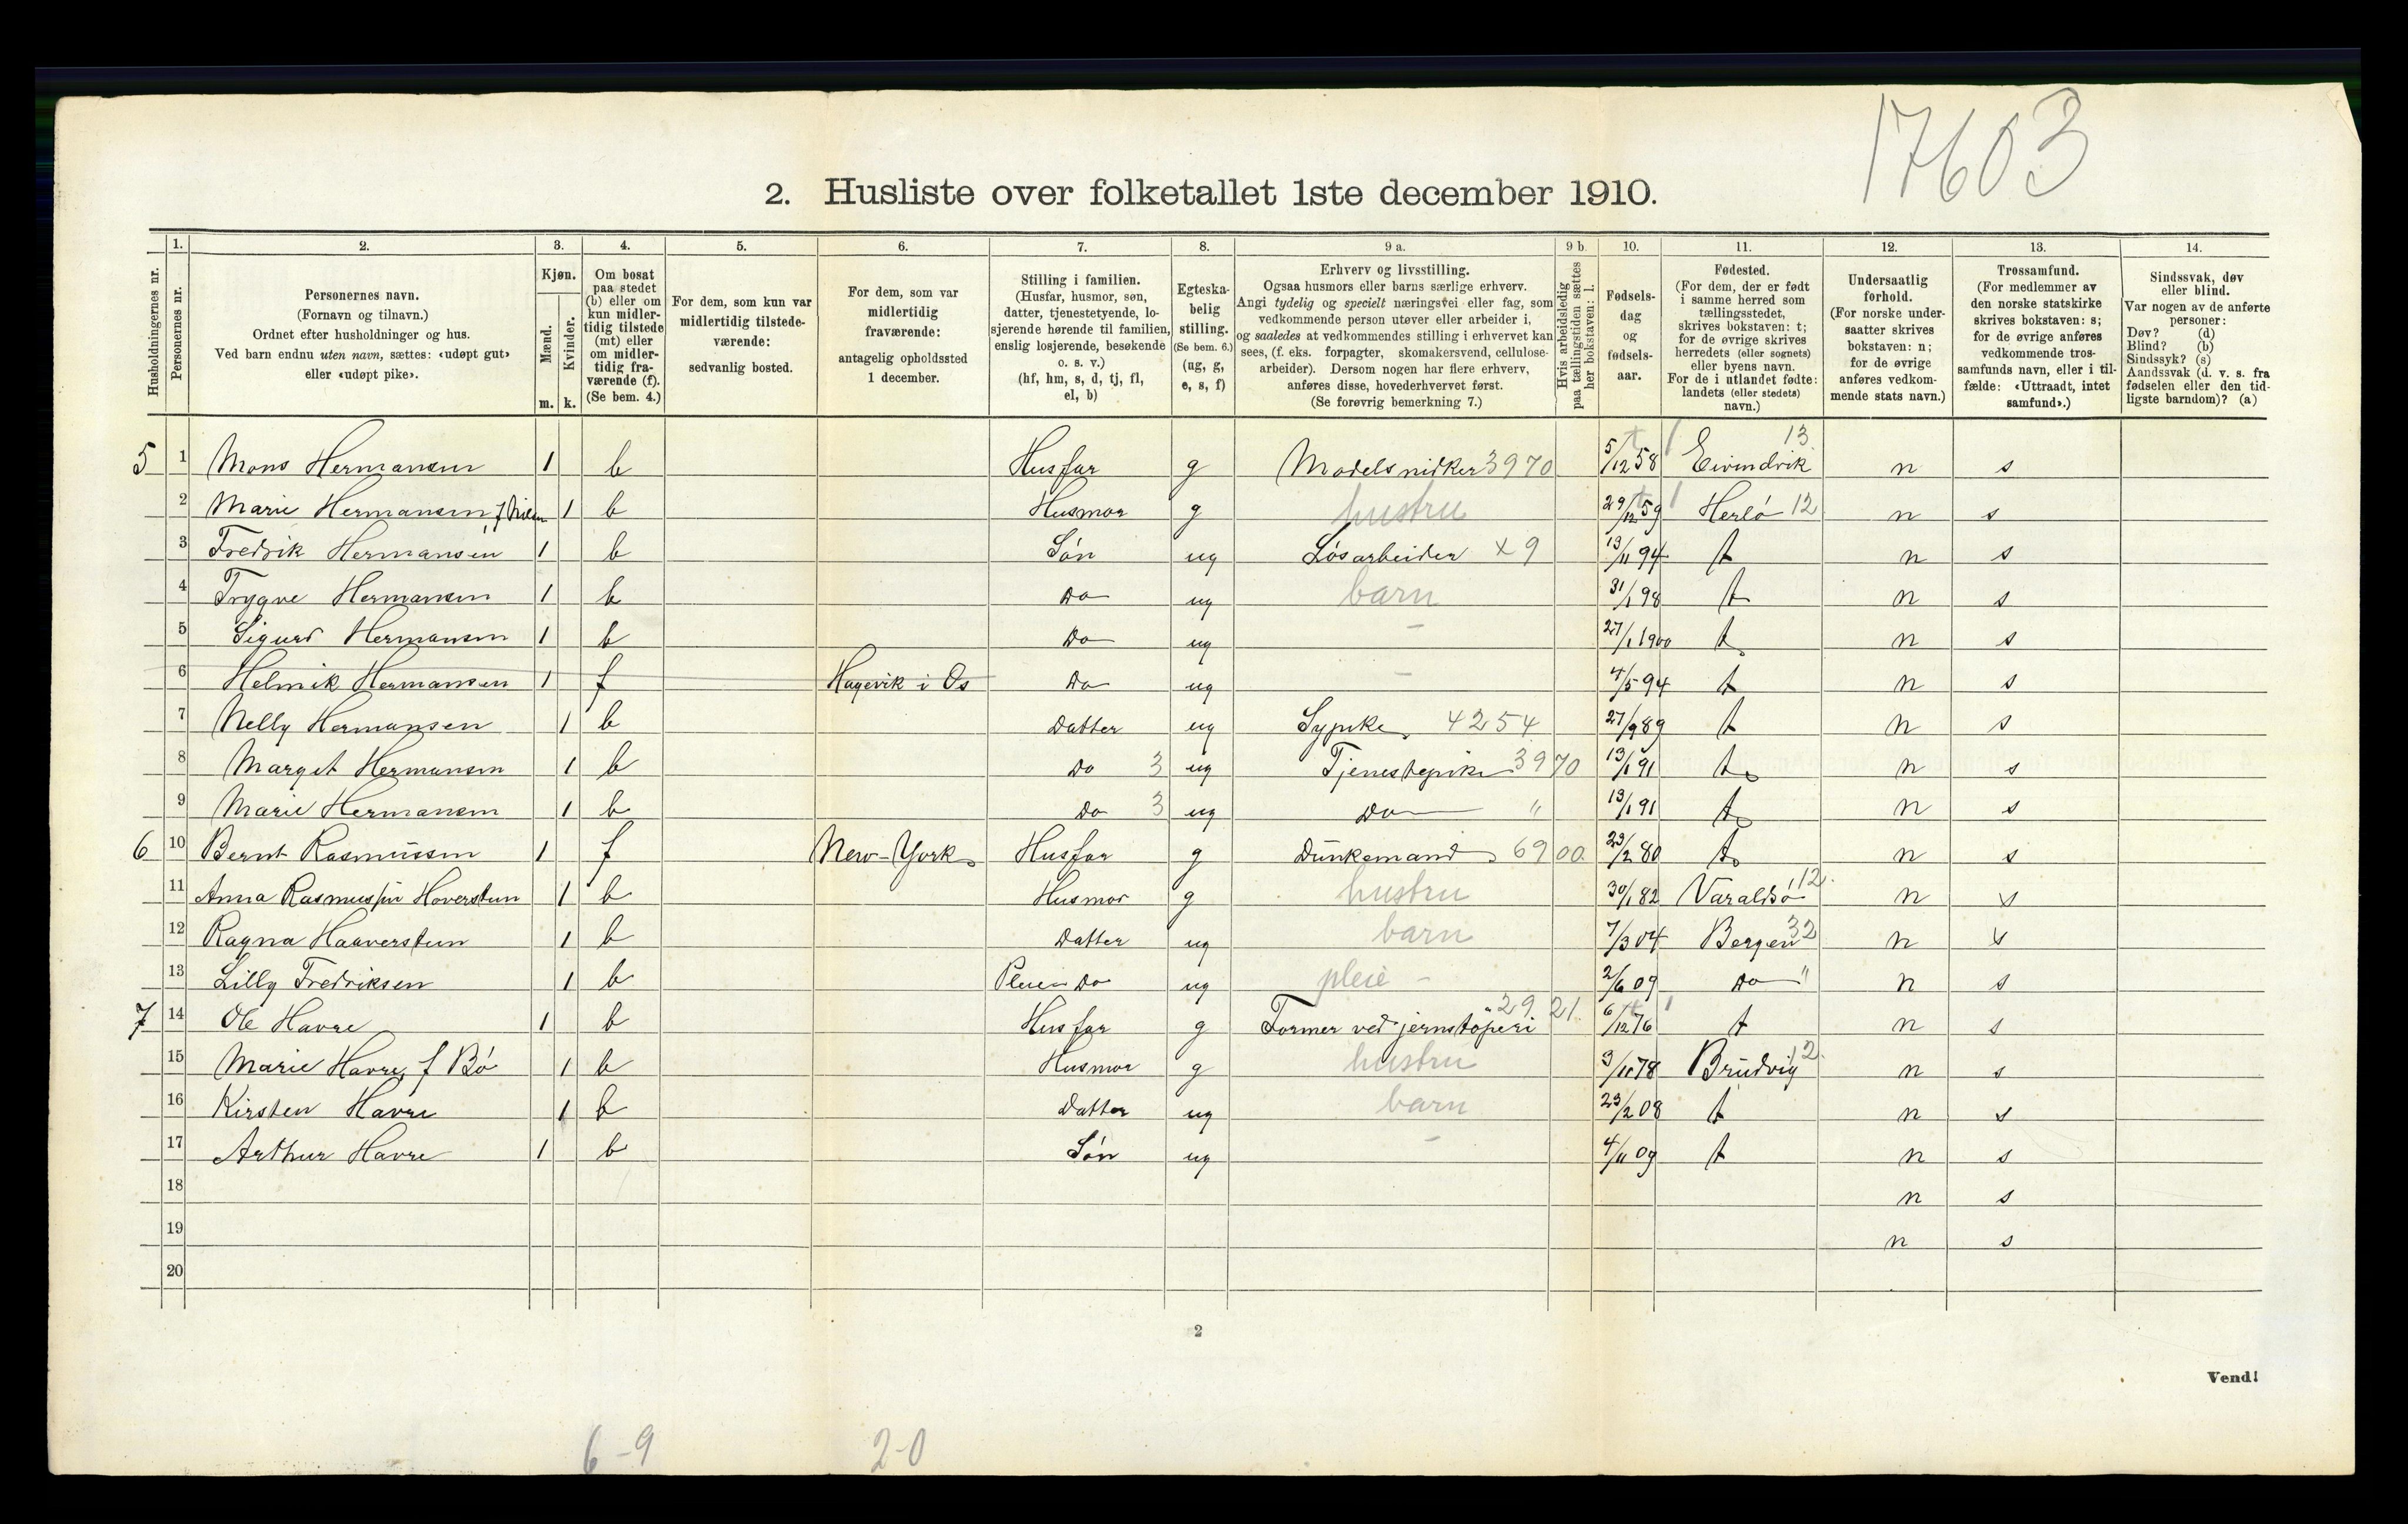 17603
2. Husliste over folketallet 1ste december 1910.
Husholdningernes nr.
1. Personernes nr.
2. Personernes navn. (Fornavn og tilnavn.) Ordnet efter husholdninger og hus. Ved barn endnu uten navn, sættes: «udøpt gut» eller «udøpt pike».
3. Kjøn. Mænd. m. Kvinder. k.
4. Om bosat paa stedet (b) eller om kun midlertidig tilstede (mt) eller om midlertidig fraværende (f). (Se bem. 4.)
5. For dem, som kun var midlertidig tilstedeværende: sedvanlig bosted.
6. For dem, som var midlertidig fraværende: antagelig opholdssted 1 december.
7. Stilling i familien. (Husfar, husmor, søn, datter, tjenestetyende, losjerende hørende til familien, enslig losjerende, besøkende o. s. v.) (hf, hm, s, d, tj, fl, el, b)
8. Egteskabelig stilling. (Se bem. 6.) (ug, g, e, s, f)
9 a. Erhverv og livsstilling. Ogsaa husmors eller barns særlige erhverv. Angi tydelig og specielt næringsvei eller fag, som vedkommende person utøver eller arbeider i, og saaledes at vedkommendes stilling i erhvervet kan sees, (f. eks. forpagter, skomakersvend, cellulosearbeider). Dersom nogen har flere erhverv, anføres disse, hovederhvervet først. (Se forøvrig bemerkning 7.)
9 b. Hvis arbeidsledig paa tællingstiden sættes her bokstaven: l.
10. Fødselsdag og fødselsaar.
11. Fødested. (For dem, der er født i samme herred som tællingsstedet, skrives bokstaven: t; for de øvrige skrives herredets (eller sognets) eller byens navn. For de i utlandet fødte: landets (eller stedets) navn.)
12. Undersaatlig forhold. (For norske undersaatter skrives bokstaven: n; for de øvrige anføres vedkommende stats navn.)
13. Trossamfund. (For medlemmer av den norske statskirke skrives bokstaven: s; for de øvrige anføres vedkommende trossamfunds navn, eller i tilfælde: «Uttraadt, intet samfund».)
14. Sindssvak, døv eller blind. Var nogen av de anførte personer: Døv? (d) Blind? (b) Sindssyk? (s) Aandssvak (d. v. s. fra fødselen eller den tidligste barndom)? (a)
5 1 Mons Hermansen 1 b Husfar g Modelsnidker 3970 5/12 58 Eivindvik 13 n s
2 Marie Hermansen, f Nilsen 1 b Husmor g hustru 29/12 59 Herlö 12 n s
3 Fredrik Hermansen 1 b Sön ug Lösarbeider x 9 13/11 94 t n s
4 Trygve Hermansen 1 b Do ug barn 31/1 98 t n s
5 Sigurd Hermansen 1 b Do ug - 27/1 1900 t n s
6 Helmik Hermansen 1 f Hagevik i Os Do ug - 4/5 94 t n s
7 Nelly Hermansen 1 b Datter ug Sypike 4254 27/9 89 t n s
8 Margit Hermansen 1 b Do 3 ug Tjenestepike 3970 13/1 91 t n s
9 Marie Hermansen 1 b Do 3 ug Do " 13/1 91 t n s
6 10 Bernt Rasmussen 1 f New-York Husfar g Dunkemand 6900 23/2 80 t n s
11 Anna Rasmussen Haverstun 1 b Husmor g hustru 30/1 82 Varaldsö 12 n s
12 Ragna Haaverstun 1 b Datter ug barn 7/3 04 Bergen 32 n s
13 Lilly Fredriksen 1 b Pleie Do ug pleie - 2/6 09 Do " n s
7 14 Ole Havre 1 b Husfar g Former ved jernstöperi 29 21 6/12 76 t n s
15 Marie Havre, f Bö 1 b Husmor g hustru 3/11 78 Brudvig 12 n s
16 Kirsten Havre 1 b Datter ug barn 23/2 08 t n s
17 Arthur Havre 1 b Sön ug - 4/11 09 t n s
18 n s
19 n s
20
2
Vend!
6-9 2-0